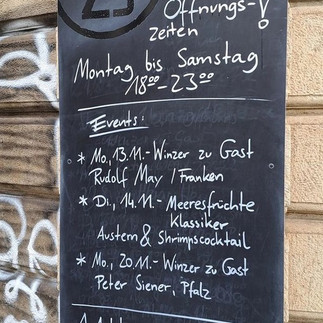 25
Öffnungs-!
zeiten
Montag bis Samstag
18⁰⁰-23⁰⁰
Events:
* Mo, 13.11.- Winzer zu Gast
Rudolf May / Franken
* Di., 14.11.- Meeresfrüchte
Klassiker
Austern & Shrimpscocktail
* Mo., 20.11.- Winzer zu Gast
Peter Siener, Pfalz